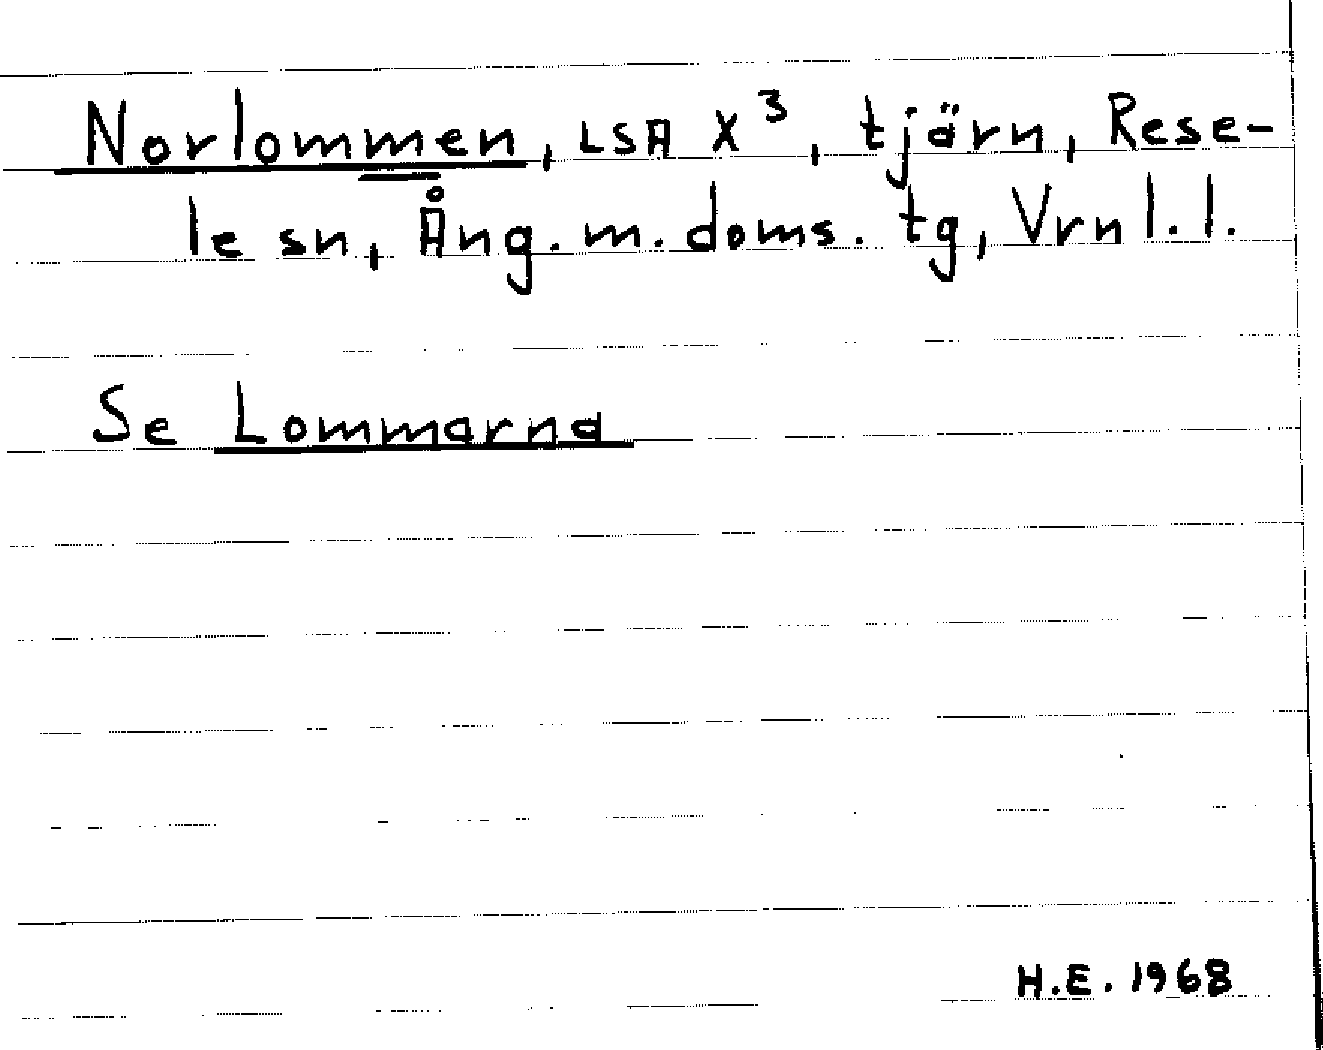 Norlommen, LSA X³, tjärn, Rese-
le sn, Ång. m. doms. tg, Vrn l. l.
Se Lommarna
H.E. 1968